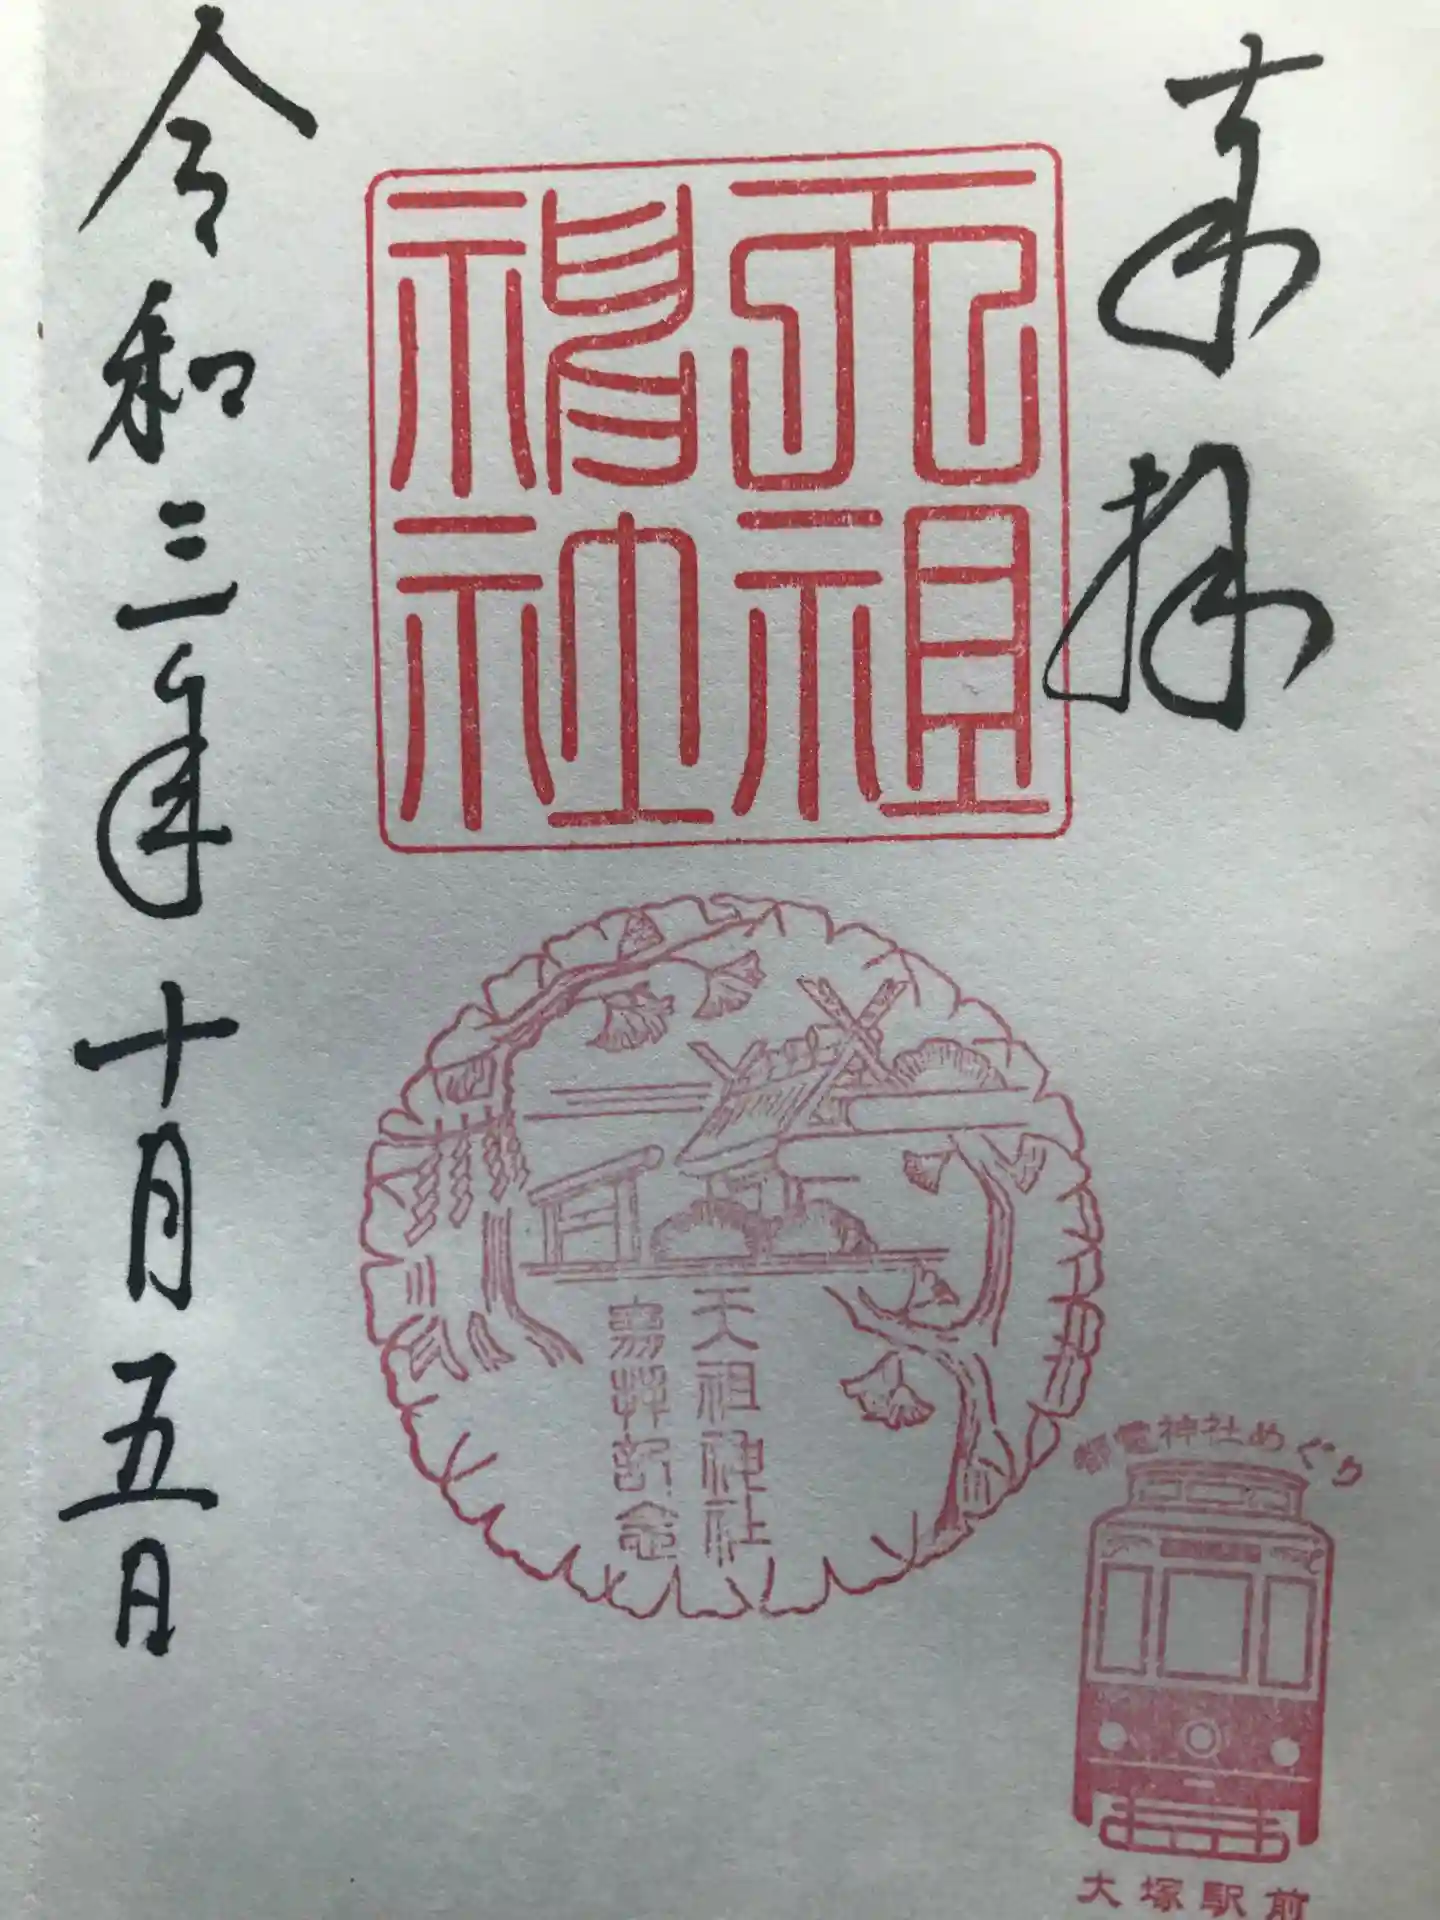 奉拝
天祖
神社
天祖神社
参拝記念
都電神社めぐり
大塚駅前
令和三年十月五日